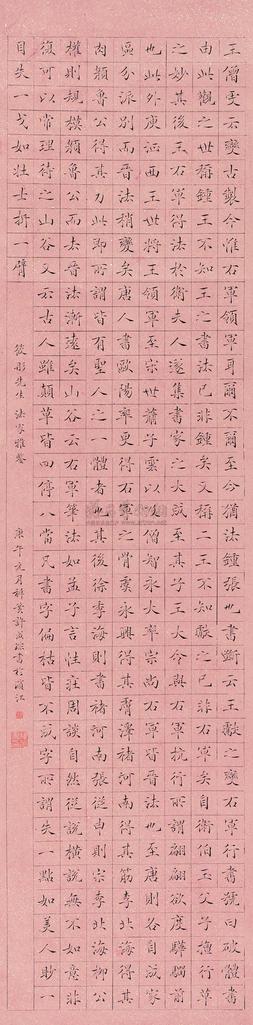 王僧虔云變古製今惟右軍領軍耳爾不爾至今猶法鍾張也書斷云王獻之變右軍行書號曰破體書
由此觀之世稱鍾王不知王之書法已非鍾矣又稱二王不知獻之已非右軍矣自衛伯玉父子漁行草
之妙其後王右軍得法於衛夫人遂集書家之大成至其子王大令與右軍抗行所謂翩翩欲度驊騮前
也此外庾洒西王世將王領軍至宗世蕭子雲以及僧智永大率宗尚右軍皆晉法也至唐則各自成家
區分派別而晉法稍變矣唐人書歐陽率更得右軍之骨虞永興得其膚澤褚河南得其筋李北海得其
肉顏魯公得其力此即所謂皆有聖人之一體者也其後徐季海則書褚河南張從申則宗李北海柳公
權則規模顏魯公而去晉法漸遠矣山谷云右軍筆法如孟子言性莊周談自然從說橫說無不如意非
復可以常理待之山谷又云古人雖顛草皆四停八當凡書字偏枯皆不成字所謂失一點如美人眇一
目失一戈如壯士折一臂
筱彤先生法家雅鑒
庚午九月 書於滬江